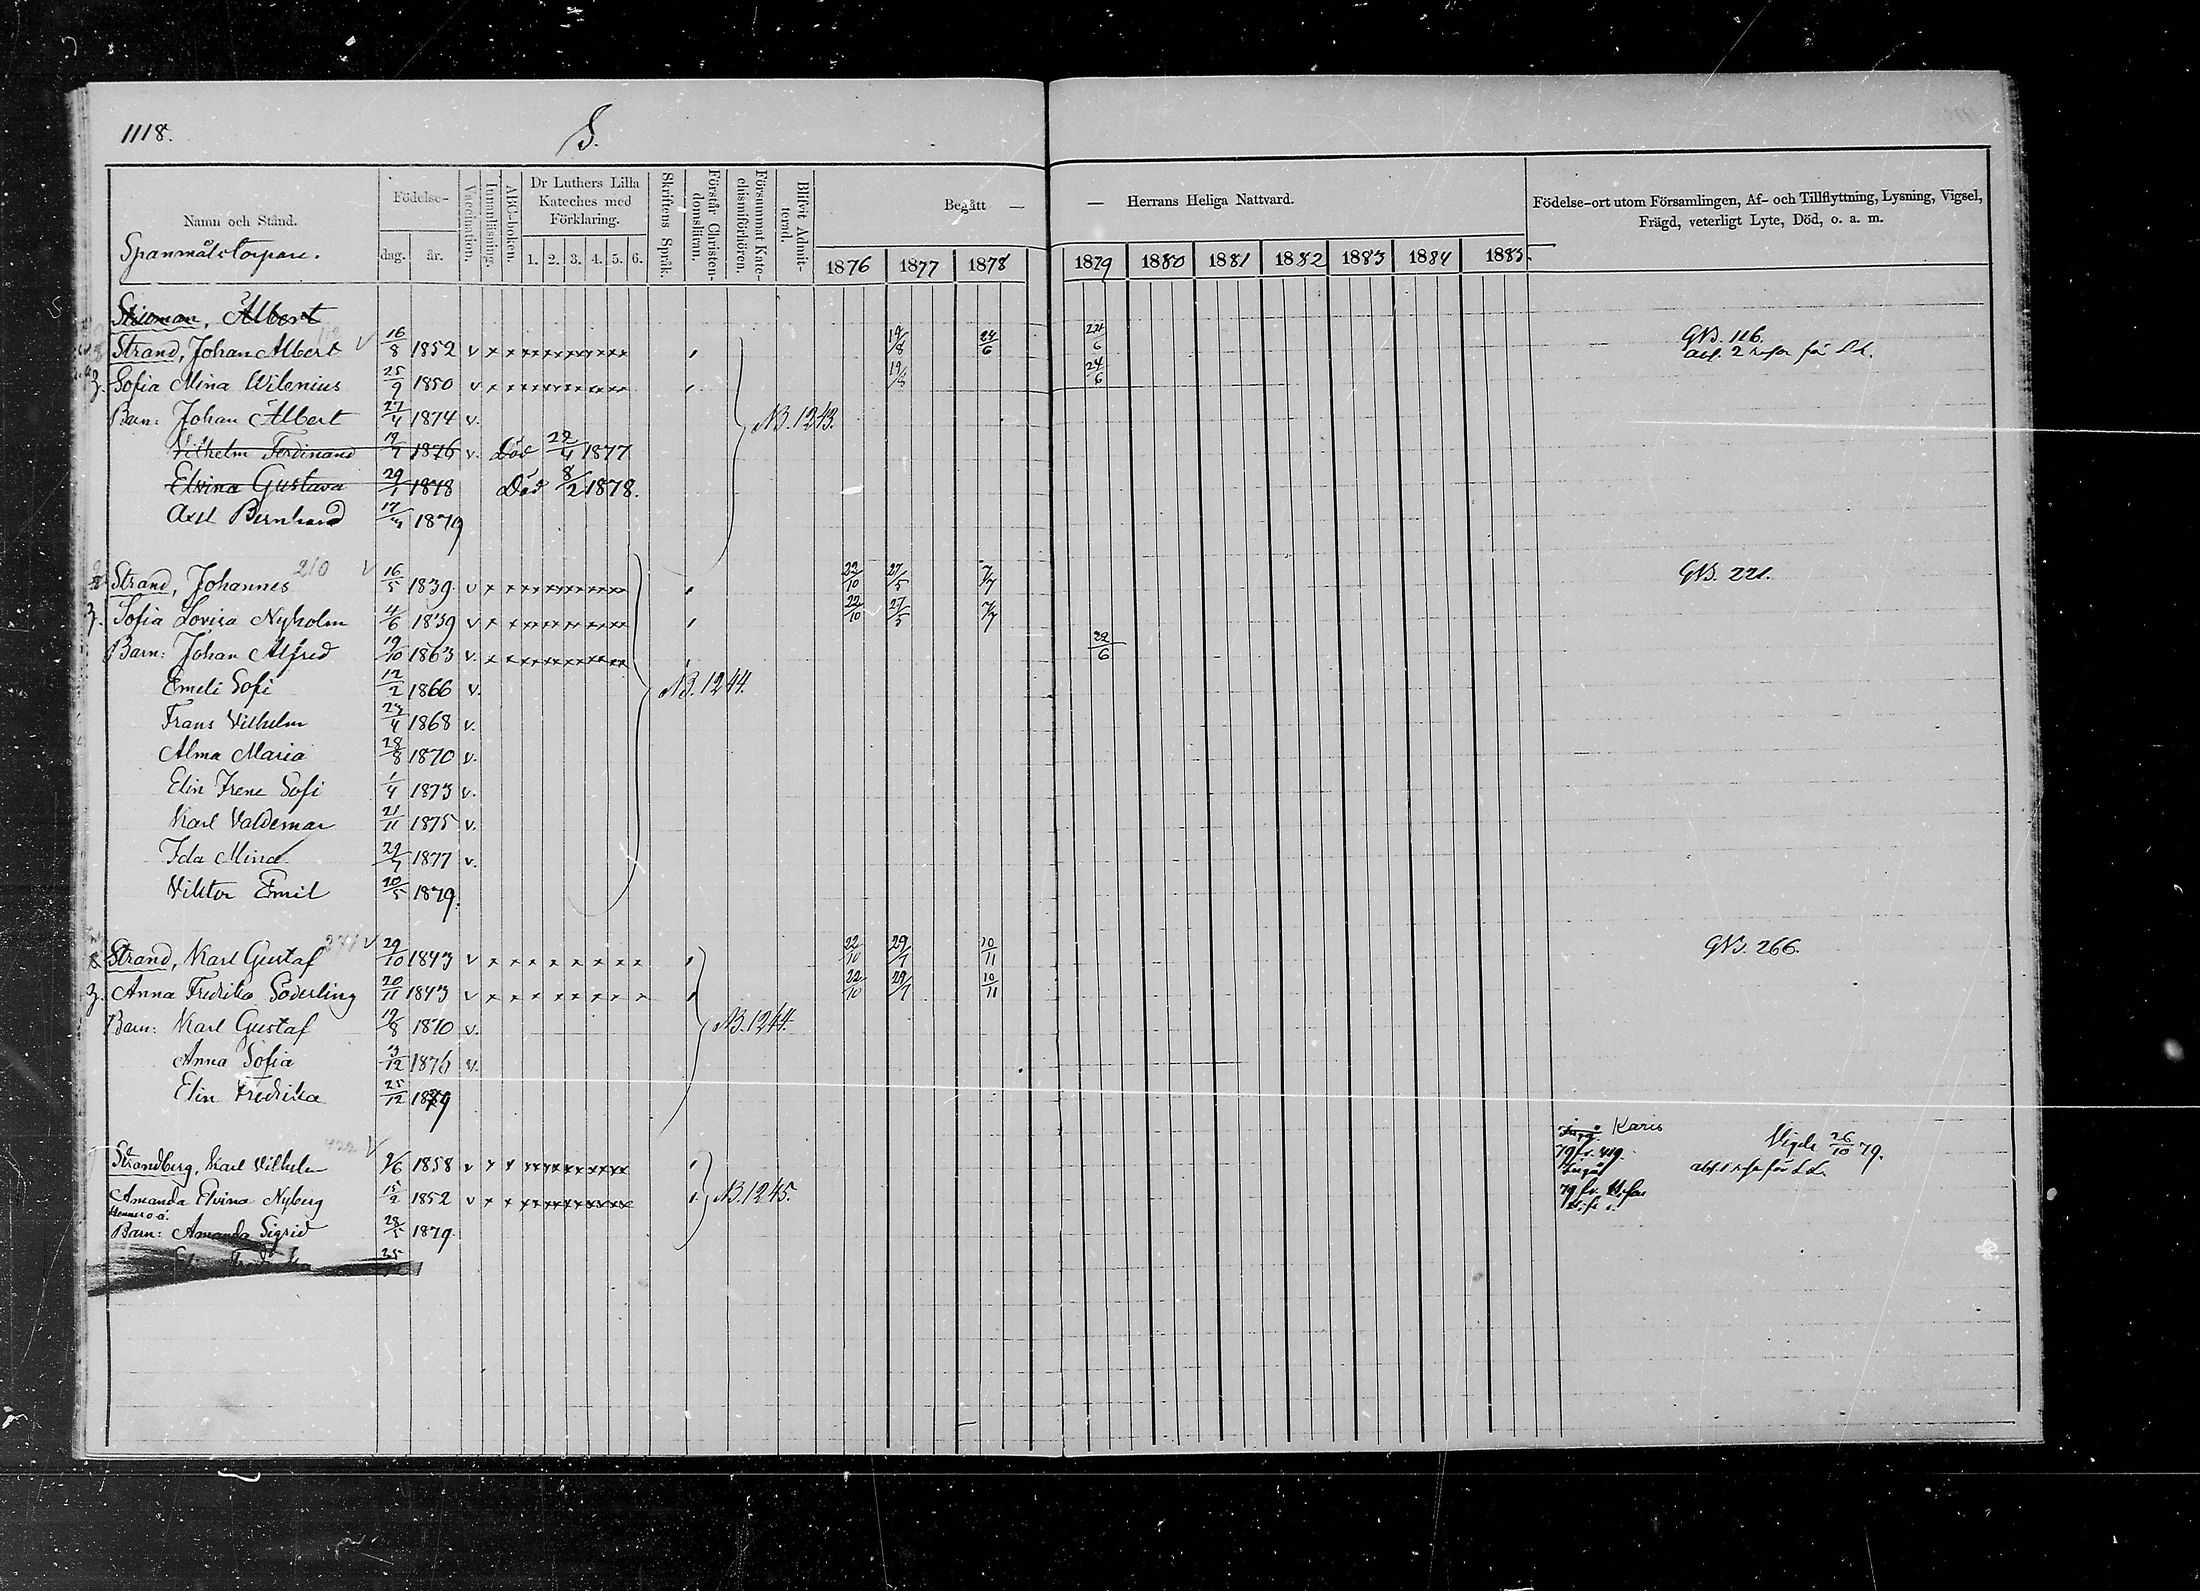 1118.
S.
Namn och Stånd.
Spanmålstorpare.
Födelse-
dag. år.
Vaccination.
Innanläsning.
ABC-boken.
Dr Luthers Lilla Kateches med Förklaring.
1. 2. 3. 4. 5. 6.
Skriftens Språk.
Förstår Christendomsläran.
Försummat Katechismiförhören.
Blifvit Admitterad.
Begått — — Herrans Heliga Nattvard.
1876 1877 1878 1879 1880 1881 1882 1883 1884 1885.
Födelse-ort utom Församlingen, Af- och Tillflyttning, Lysning, Vigsel,
Frägd, veterligt Lyte, Död, o. a. m.
Albert
Strand, Johan Albert 16/8 1852 v 19/8 24/6 24/6 GB. 116.
Sofia Mina Wilenius 25/9 1850 v 19/8 24/6
Barn: Johan Albert 27/4 1874 v. NB. 1243.
Vilhelm Ferdinand 1876 v. Död 22/4 1877
Elvina Gustava 29/1 1878 Död 8/2 1878.
Axel Bernhard 1879
Strand, Johannes 210 v 16/5 1839 v 22/10 27/5 7/7 GB. 221.
Sofia Lovisa Nyholm 4/6 1839 v 22/10 27/5 7/7
Barn: Johan Alfred 19/10 1863 v. 22/6
Emeli Sofi 12/2 1866 v. NB. 1244.
Frans Vilhelm 23/4 1868 v.
Alma Maria 28/8 1870 v.
Elin Irene Sofi 1/4 1873 v.
Karl Valdemar 21/11 1875 v.
Ida Mina 29/7 1877 v.
Viktor Emil 20/5 1879.
Strand, Karl Gustaf v 29/10 1843 v 22/10 29/7 10/11 GB. 266.
Anna Fredrika Söderling 20/11 1843 v 22/10 29/7 10/11
Barn: Karl Gustaf 19/8 1870 v. NB. 1244.
Anna Sofia 3/12 1876 v.
Elin Fredrika 25/12 1879
Karis
Strandberg, Karl Vilhelm 9/6 1858 v 79 fr. 419. Vigde 26/10 79.
Ingå
Amanda Elvina Nyberg 15/2 1852 v NB. 1245.
Hennes o ä.
Barn: Amanda Sigrid 28/5 1879.